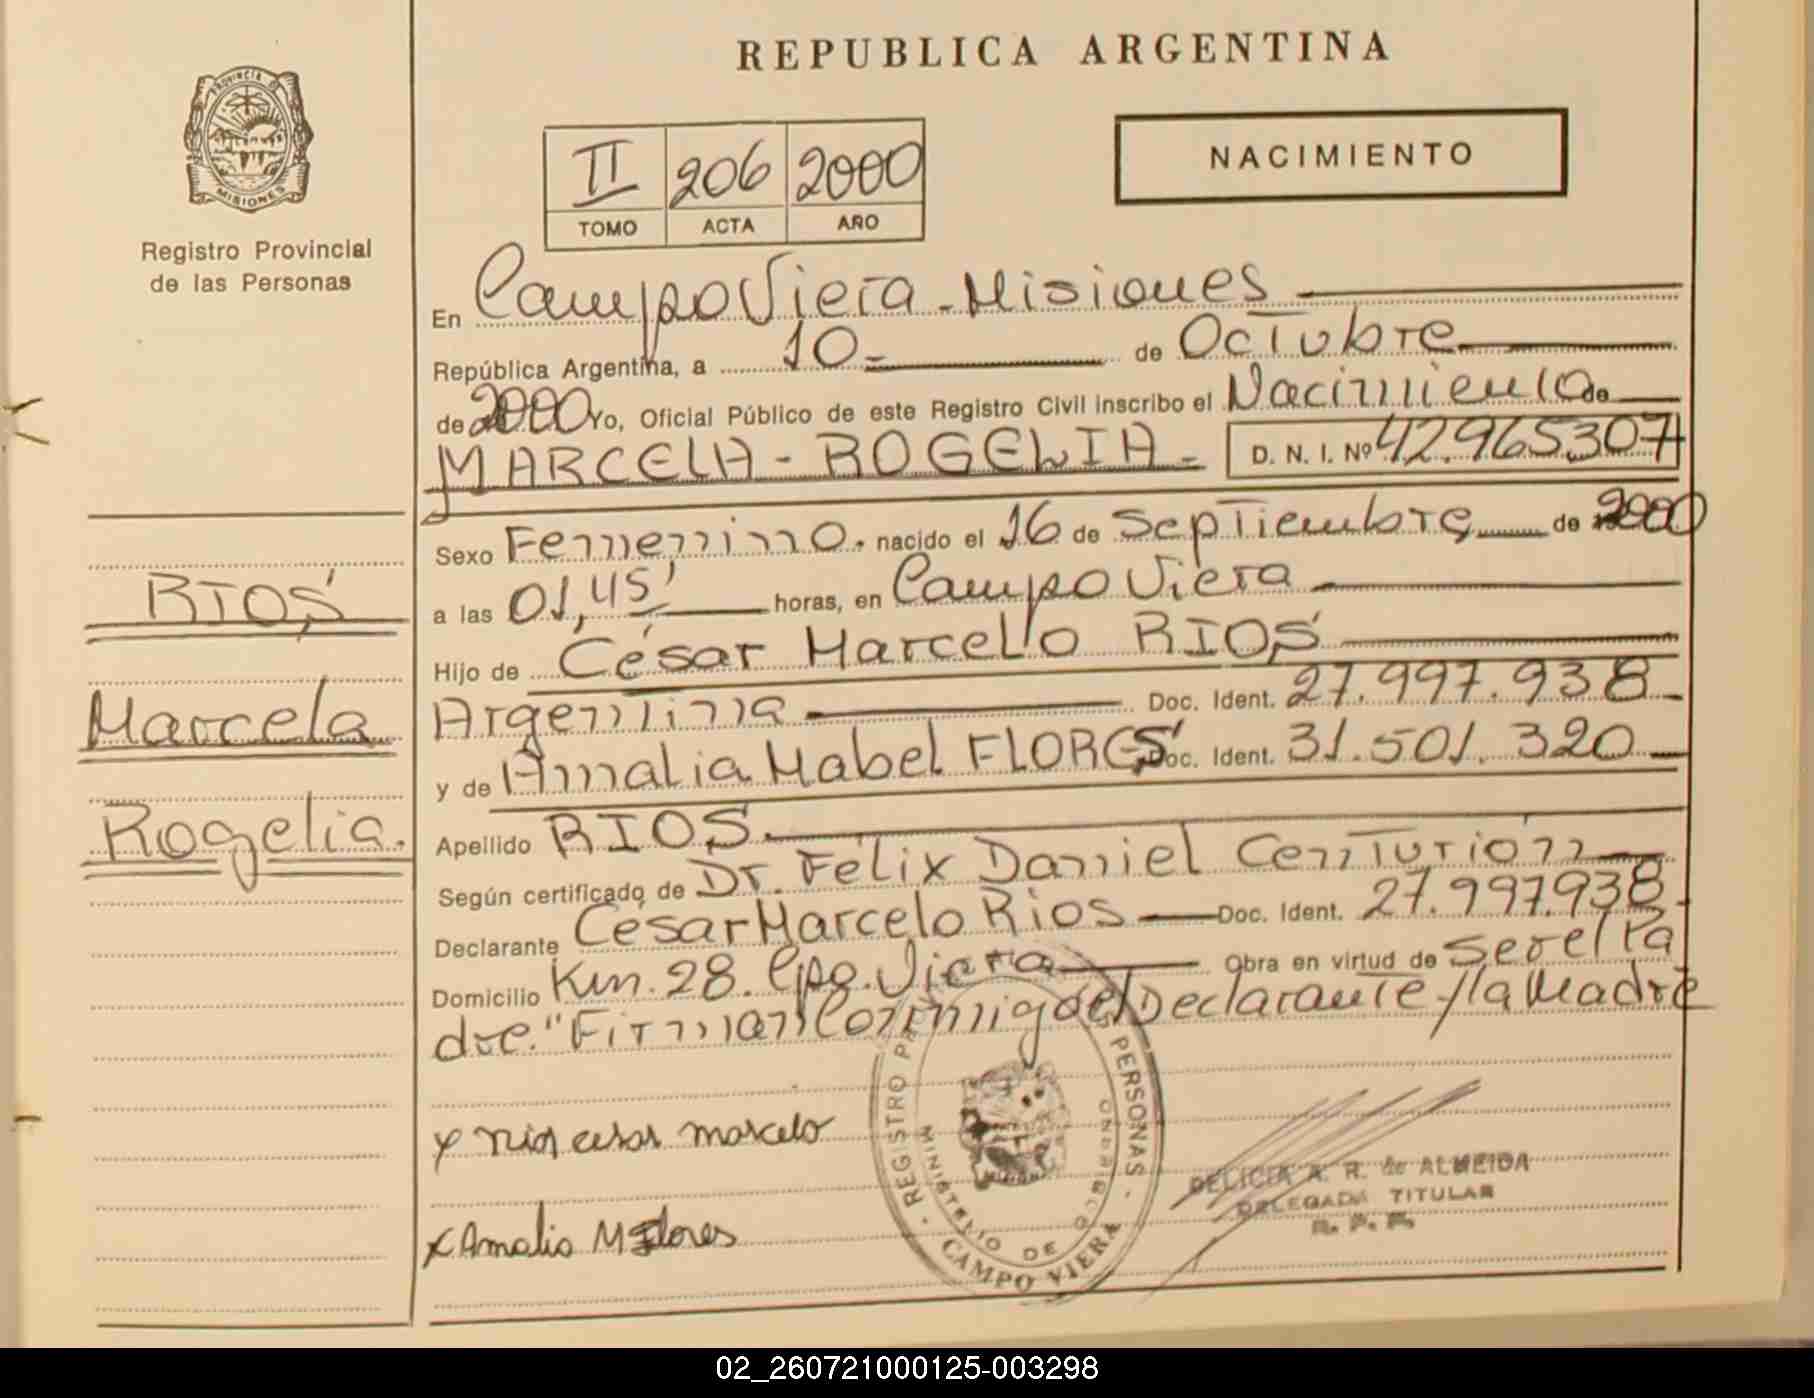 REPUBLICA ARGENTINA
PROVINCIA DE MISIONES
Registro Provincial
de las Personas
II 206 2000
TOMO ACTA AÑO
NACIMIENTO
En Campo Viera - Misiones
República Argentina, a 10 - de Octubre
de 2000 Yo, Oficial Público de este Registro Civil inscribo el Nacimiento de
MARCELA - ROGELIA - D. N. I. Nº 42.965.307
Sexo Femenino. nacido el 16 de Septiembre de 2000
a las 01,45' horas, en Campo Viera
Hijo de César Marcelo RIOS
Argentina Doc. Ident. 27.997.938
y de Amalia Mabel FLORES Doc. Ident. 31.501.320
Apellido RIOS
Según certificado de Dr. Félix Daniel Centurión
Declarante César Marcelo Rios Doc. Ident. 27.997.938
Domicilio Km. 28. Cpo. Viera Obra en virtud de
Firman conmigo el Declarante y la Madre
RIOS
Marcela
Rogelia.
x rios cesar marcelo
x Amalia M Flores
REGISTRO PERSONAS
MINISTERIO DE GOBIERNO
CAMPO VIERA
DELICIA A. R. de ALMEIDA
DELEGADA TITULAR
R. P. P.
02_260721000125-003298